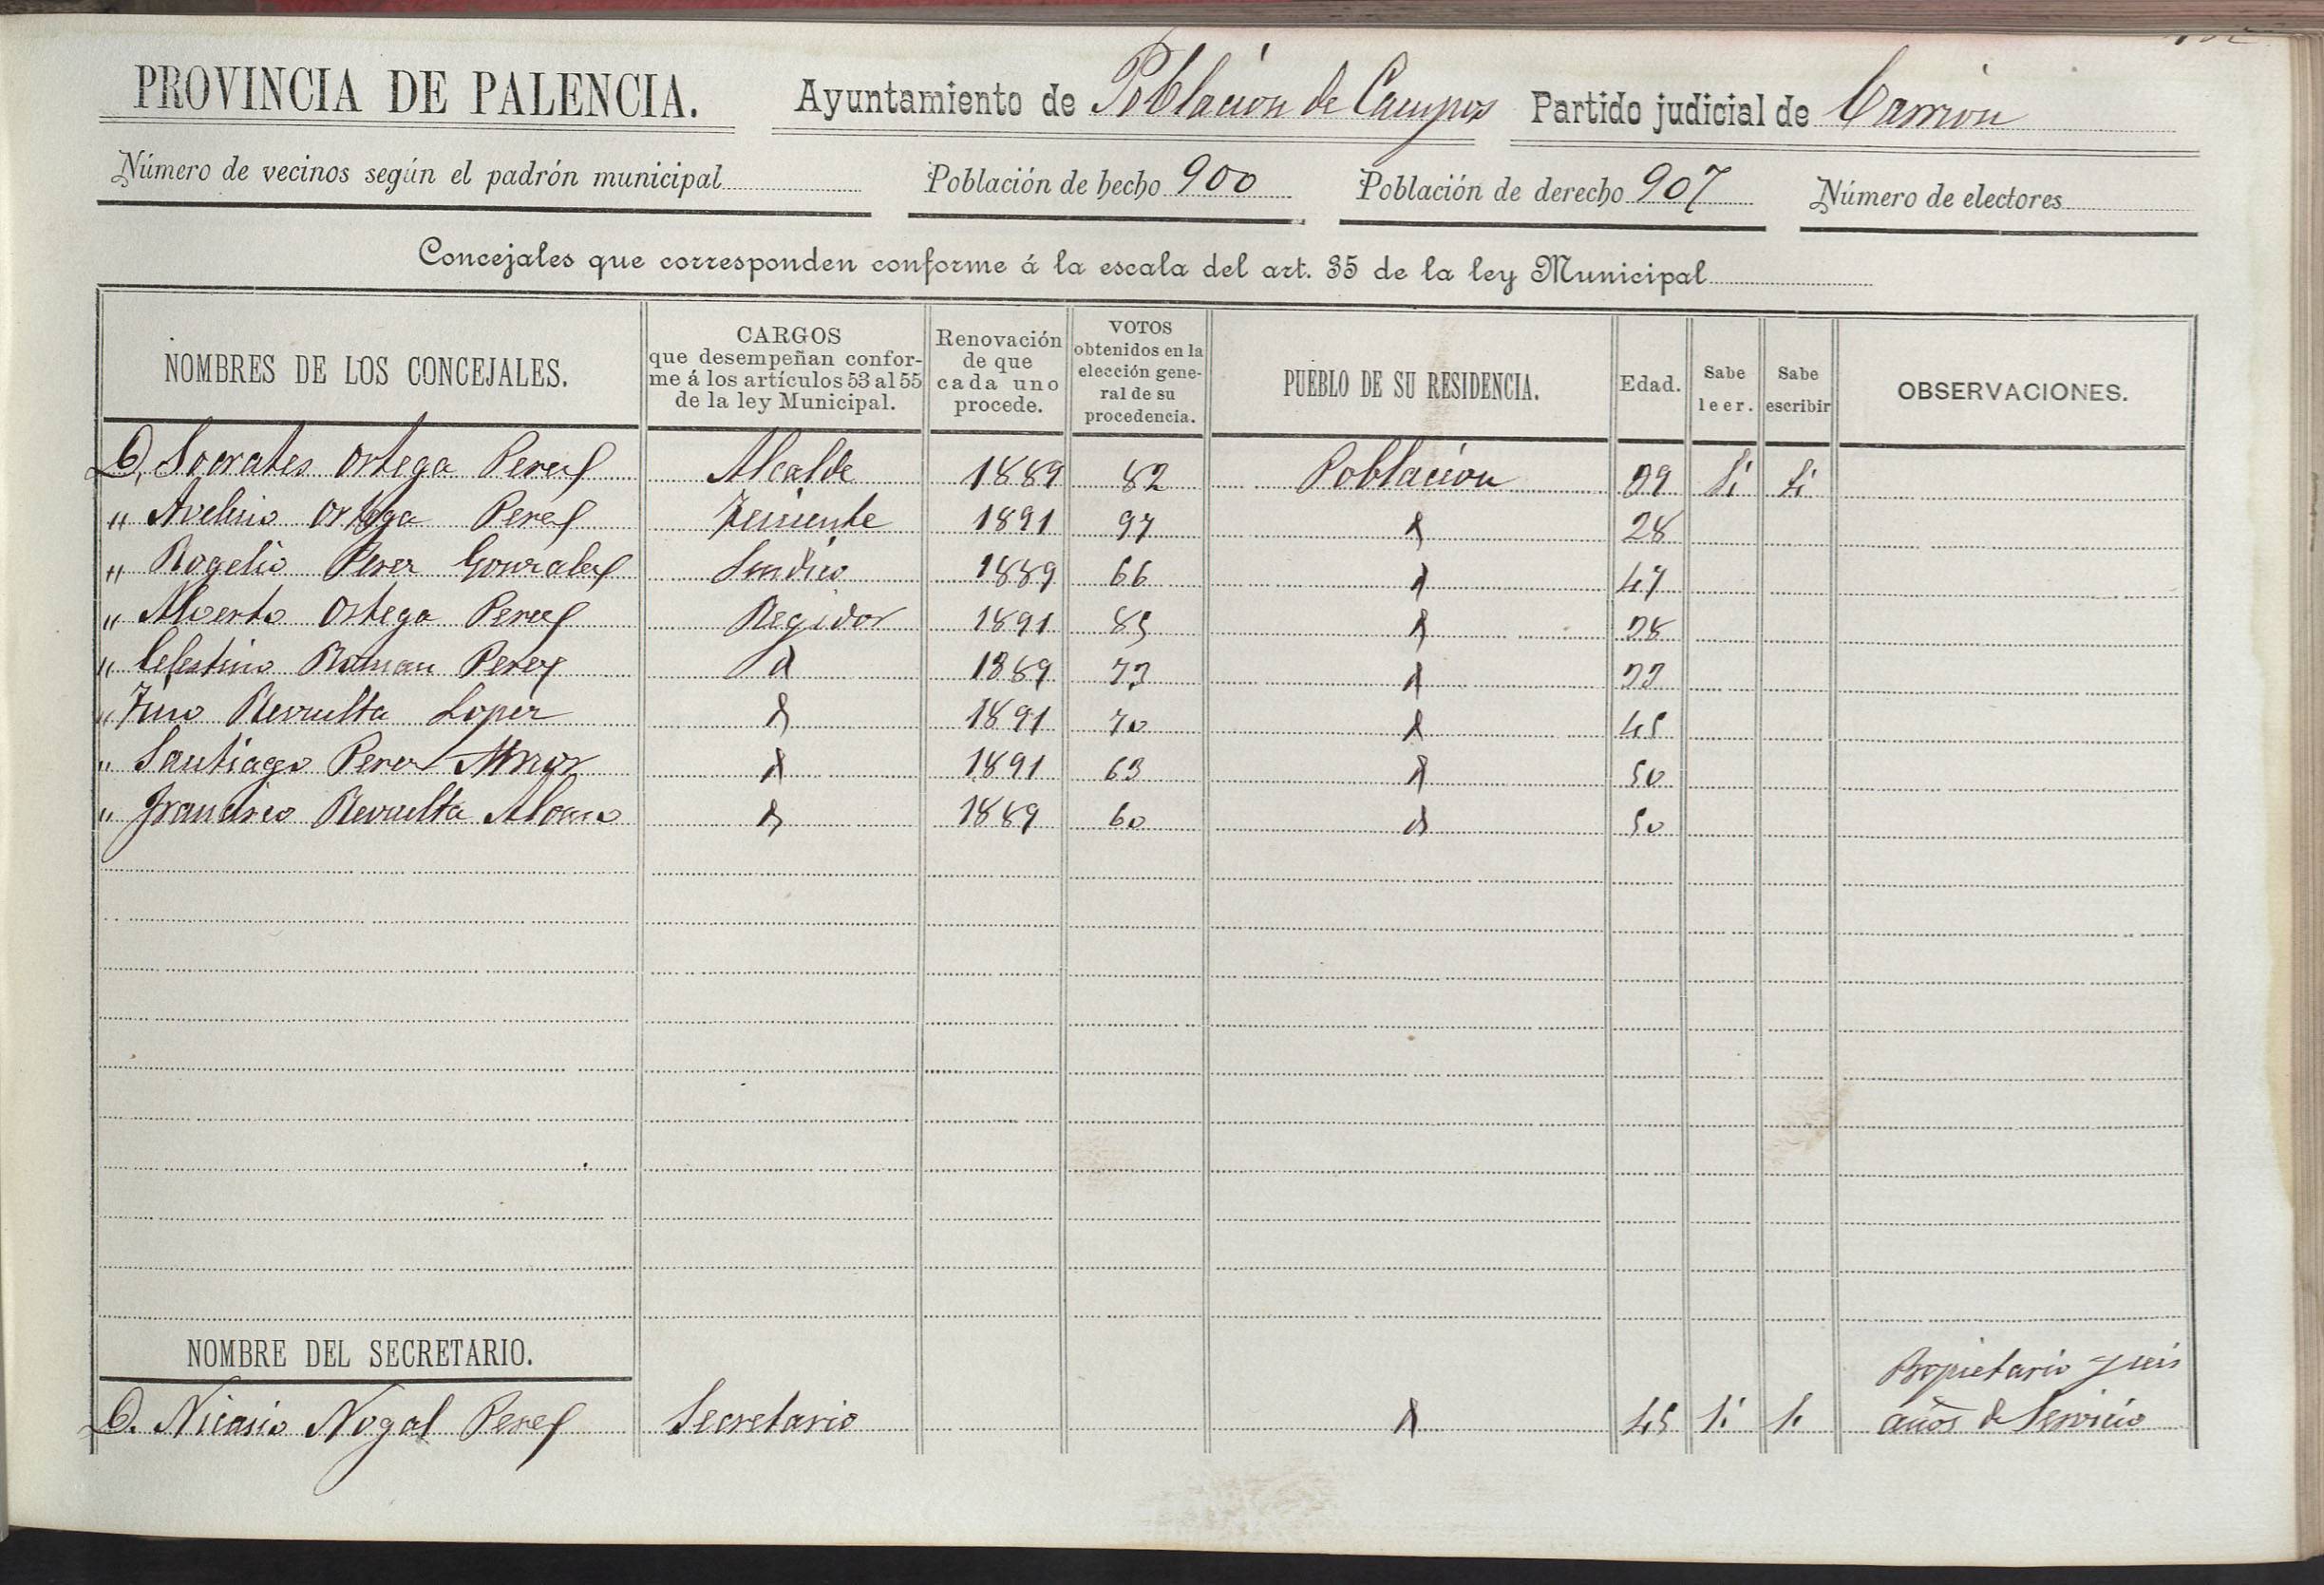 PROVINCIA DE PALENCIA. Ayuntamiento de Población de Campos Partido judicial de Carrion
Número de vecinos según el padrón municipal Población de hecho 900 Población de derecho 907 Número de electores
Concejales que corresponden conforme á la escala del art. 35 de la ley Municipal
NOMBRES DE LOS CONCEJALES. CARGOS que desempeñan conforme á los artículos 53 al 55 de la ley Municipal. Renovación de que cada uno procede. VOTOS obtenidos en la elección general de su procedencia. PUEBLO DE SU RESIDENCIA. Edad. Sabe leer. Sabe escribir OBSERVACIONES.
D. Socrates Ortega Perez Alcalde 1889 82 Poblacion 39 Si Si
" Avelino Ortega Perez Teniente 1891 97 d 28
" Rogelio Perez Gonzalez Sindico 1889 66 d 47
" Alverto Ortega Perez Regidor 1891 85 d 38
" Celestino Roman Perez d 1889 73 d 33
" Tino Revuelta Lopez d 1891 70 d 45
" Santiago Perez d 1891 63 d 50
" Francisco Revuelta Alonso d 1889 60 d 50
NOMBRE DEL SECRETARIO.
D. Nicasio Nogal Perez Secretario d 45 Si Si Propietario y seis
años de Servicio